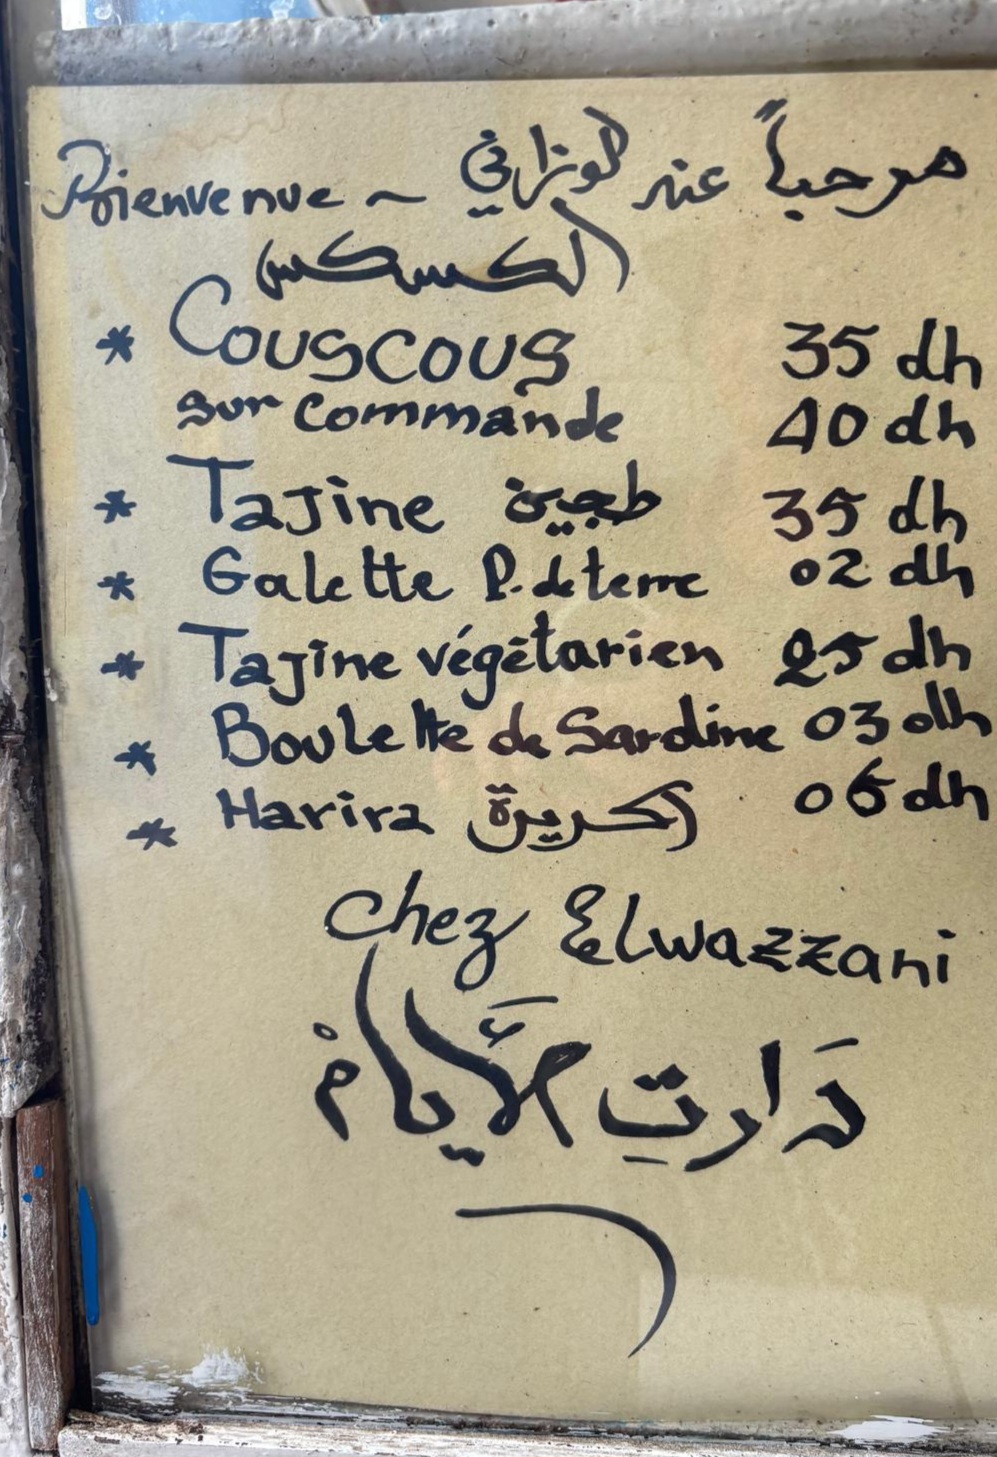 Bienvenue ~ مرحباً عند الوزاني
الكسكس
* Couscous 35 dh
sur commande 40 dh
* Tajine طجين 35 dh
* Galette P. de terre 02 dh
* Tajine végétarien 25 dh
* Boulette de Sardine 03 dh
* Harira الحريرة 06 dh
chez Elwazzani
دَارتِ الأَيامْ